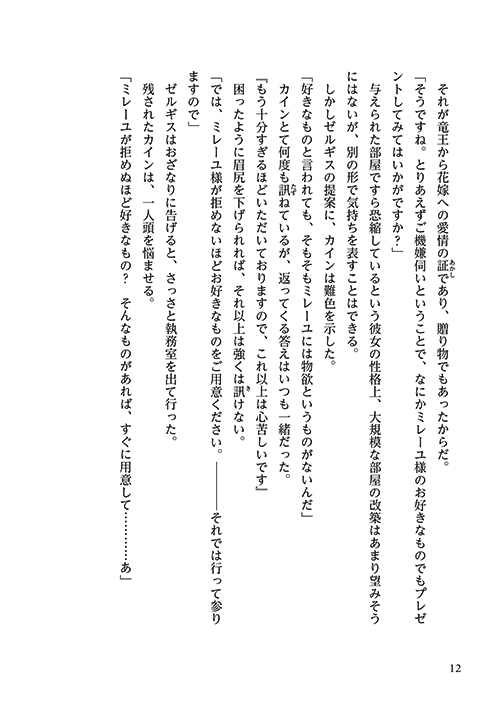 それが竜王から花嫁への愛情の証であり、贈り物でもあったからだ。
「そうですね。とりあえずご機嫌伺いということで、なにかミレーユ様のお好きなものでもプレゼ
ントしてみてはいかがですか？」
与えられた部屋ですら恐縮しているという彼女の性格上、大規模な部屋の改築はあまり望みそう
にはないが、別の形で気持ちを表すことはできる。
しかしゼルギスの提案に、カインは難色を示した。
「好きなものと言われても、そもそもミレーユには物欲というものがないんだ」
カインとて何度も訊ねているが、返ってくる答えはいつも一緒だった。
『もう十分すぎるほどいただいておりますので、これ以上は心苦しいです』
困ったように眉尻を下げられれば、それ以上は強くは訊けない。
「では、ミレーユ様が拒めないほどお好きなものをご用意ください。――――それでは行って参り
ますので」
ゼルギスはおざなりに告げると、さっさと執務室を出て行った。
残されたカインは、一人頭を悩ませる。
「ミレーユが拒めぬほど好きなもの？　そんなものがあれば、すぐに用意して…………あ」
12